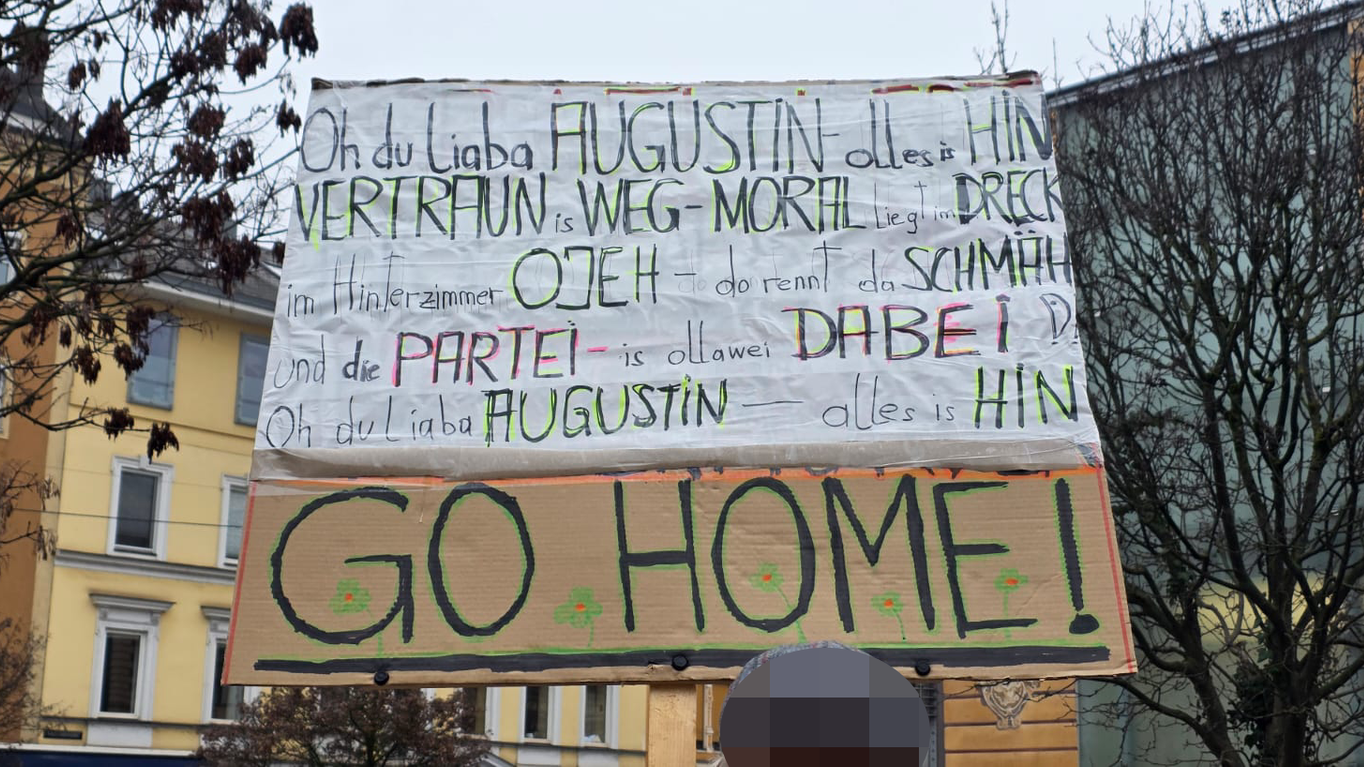 Oh du liaba AUGUSTIN - olles is HIN
VERTRAUN is WEG - MORAL liegt im DRECK
im Hinterzimmer OJEH - do rennt da SCHMÄH
und die PARTEI - is ollawei DABEI
Oh du liaba AUGUSTIN — alles is HIN
GO HOME!